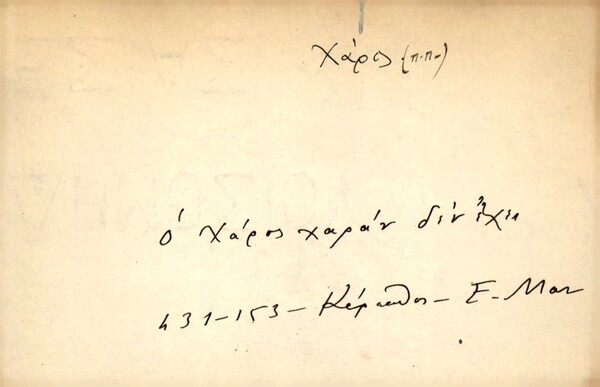 Χάρος (π.π.)
ὁ Χάρος χαράν δέν ἔχει
431-153- Κάρπαθος - Ε. Μαν